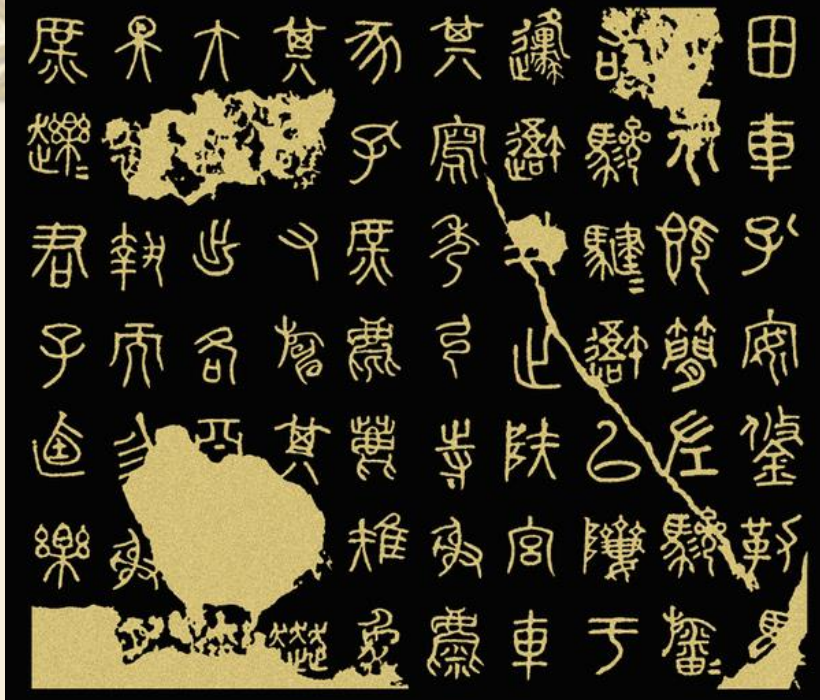 田車孔安鋚勒馬
介既簡左驂旛=
右驂騝=䢒㠯隮于
邍䢒止陕宮車
其寫秀弓寺射麋
豕孔庶麀鹿雉兔
其又旃其奔
大出各亞
昊執而勿射
庶趯=君子逌樂